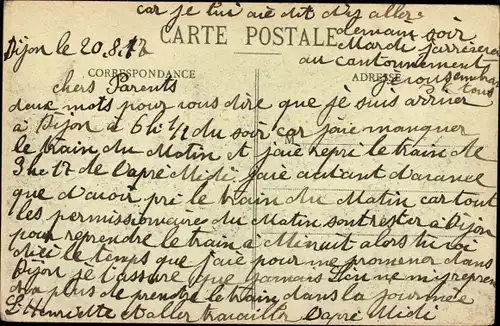 car je lui aie dit d'y aller
demain soir
Dijon le 20.8.17
CARTE POSTALE
Mardi j'arriserai
au cantonnement
CORRESPONDANCE
ADRESSE
je vous embrasse
tous
chers Parents
deux mots pour vous dire que je suis arriver
à Dijon à 6h 1/2 du soir car jaie manquer
le train du Matin et jaie repri le train de
3h 17 de Dapré Midi, jaie autant d'avance
que d'avoir pri le train du Matin car tout
les permissionaire du Matin sont rester à Dijon
pour reprendre le train à Minuit alors
le temps que jaie pour me promener dans
Dijon je t'assure que jamais l'on ne m'y repren
dra plus de prendre le train dans la journée
et Henriette et aller travailler Dapré Midi